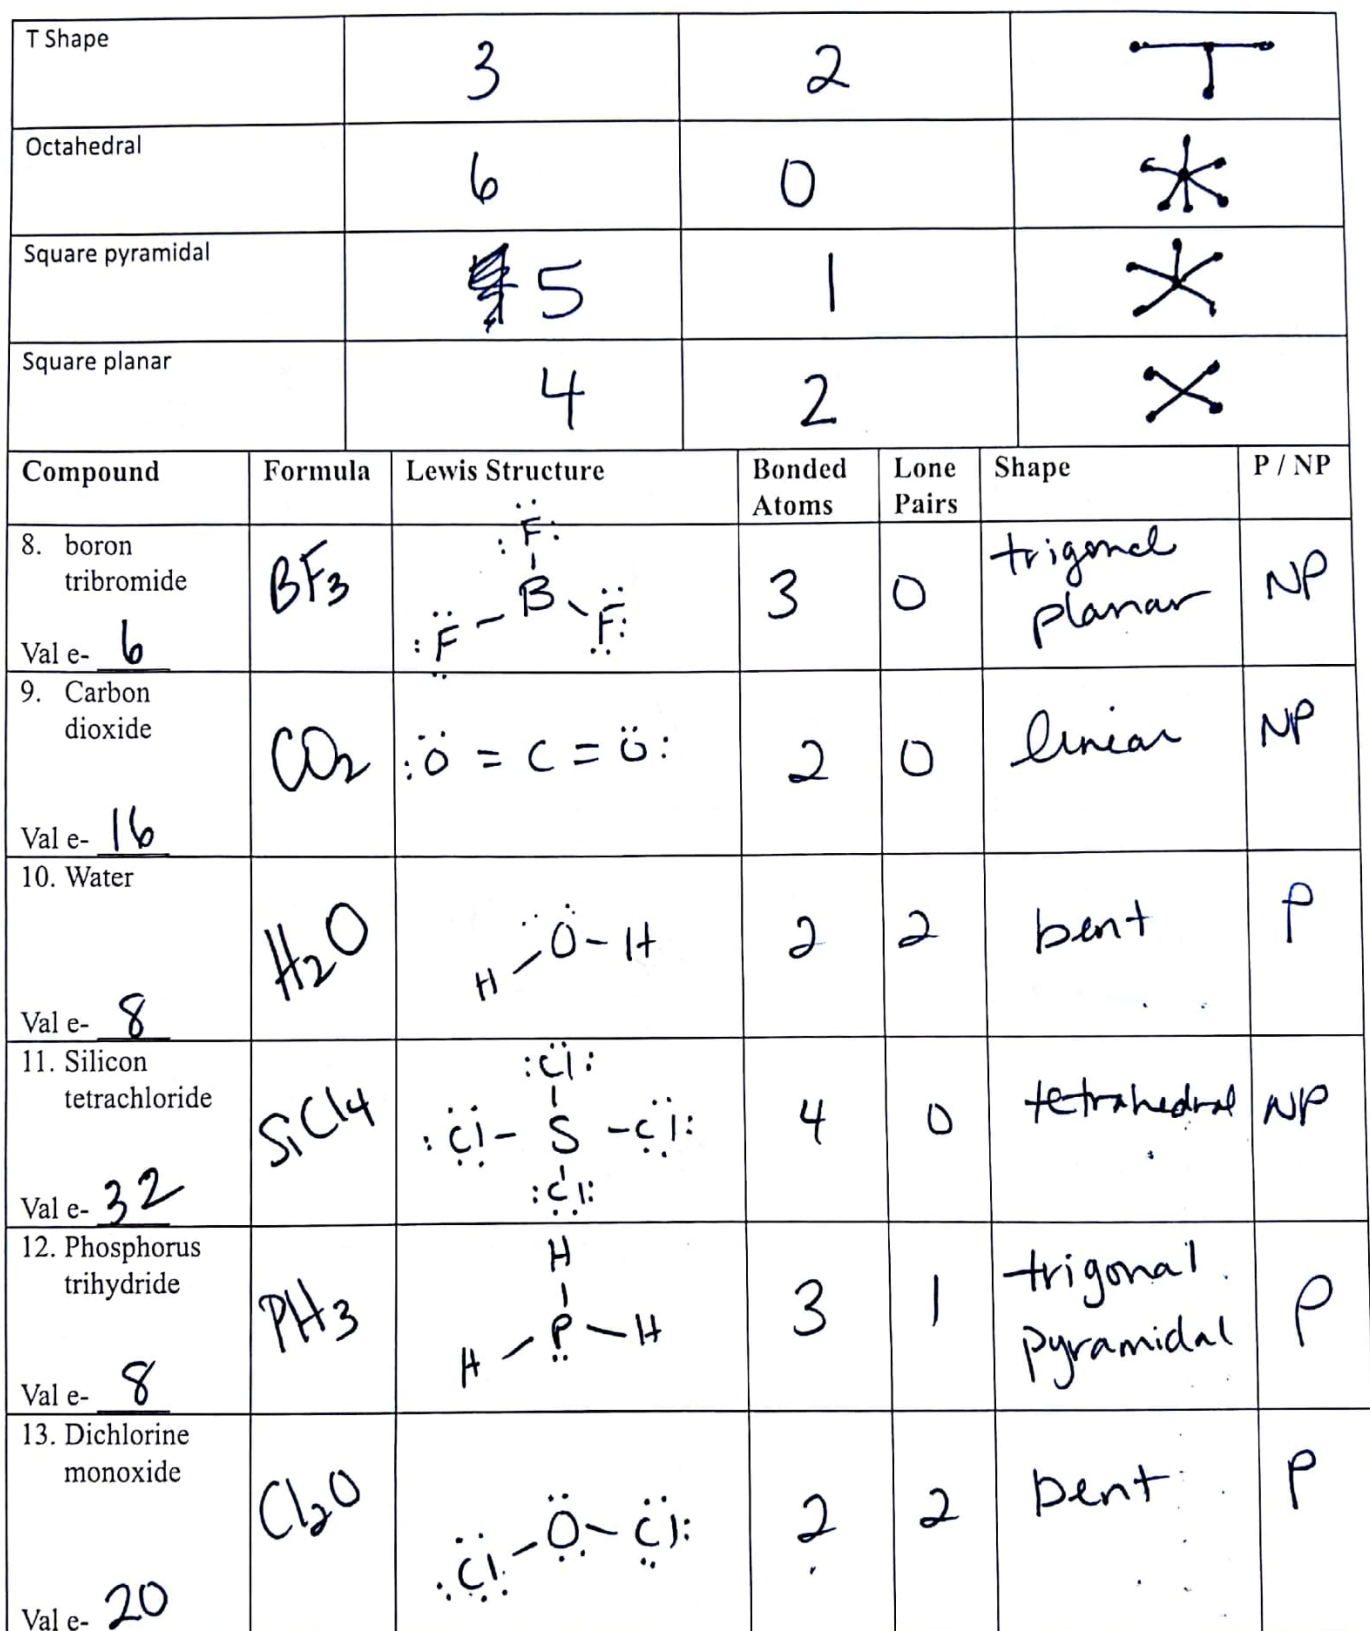 T Shape 3 2
Octahedral 6 0
Square pyramidal 5 1
Square planar 4 2
Compound Formula Lewis Structure Bonded Atoms Lone Pairs Shape P / NP
8. boron
tribromide
Val e- 6
BF3
F
B
F F
3
0
trigonal
planar
NP
9. Carbon
dioxide
Val e- 16
CO2
:Ö = C = Ö:
2
0
liniar
NP
10. Water
Val e- 8
H2O
Ö-H
H
2
2
bent
P
11. Silicon
tetrachloride
Val e- 32
SiCl4
:Cl:
:Cl- S -Cl:
:Cl:
4
0
tetrahedral
NP
12. Phosphorus
trihydride
Val e- 8
PH3
H
H P-H
3
1
trigonal
pyramidal
P
13. Dichlorine
monoxide
Val e- 20
Cl2O
:Cl-O-Cl:
2
2
bent
P